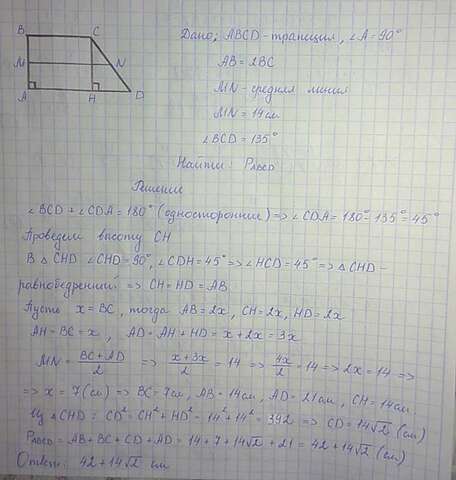 B C
M N
A H D
Дано: ABCD - трапеция, ∠A = 90°
AB = 2BC
MN - средняя линия
MN = 14 см
∠BCD = 135°
Найти: PABCD
Решение
∠BCD + ∠CDA = 180° (односторонние) => ∠CDA = 180° - 135° = 45°
Проведем высоту CH
В △CHD ∠CHD = 90°, ∠CDH = 45° => ∠HCD = 45° => △CHD -
равнобедренный => CH = HD = AB
Пусть x = BC, тогда AB = 2x, CH = 2x, HD = 2x
AH = BC = x, AD = AH + HD = x + 2x = 3x
MN = (BC + AD)/2 => (x + 3x)/2 = 14 => 4x/2 = 14 => 2x = 14 =>
=> x = 7 (см) => BC = 7 см, AB = 14 см, AD = 21 см, CH = 14 см
Из △CHD: CD² = CH² + HD² = 14² + 14² = 392 => CD = 14√2 (см)
PABCD = AB + BC + CD + AD = 14 + 7 + 14√2 + 21 = 42 + 14√2 (см)
Ответ: 42 + 14√2 см